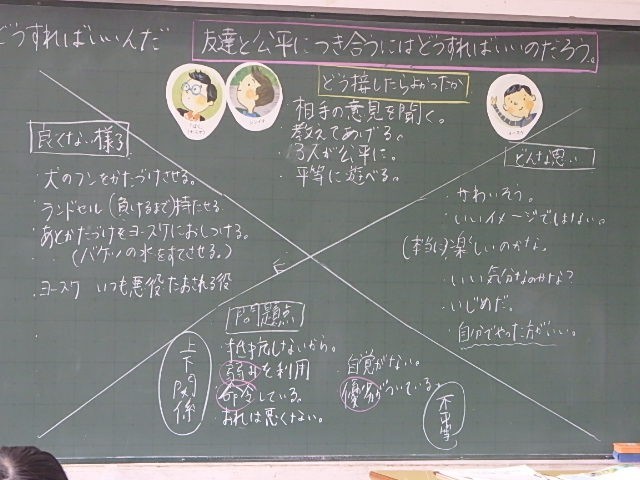 どうすればいいんだ
友達と公平につき合うにはどうすればいいのだろう。
どう接したらよかったか
相手の意見を聞く。
教えてあげる。
3人が公平に。
平等に遊べる。
良くない様子
・犬のフンをかたづけさせる。
・ランドセル(負けるまで)持たせる
・あとかたづけをヨースケにおしつける。
(バケツの水をすてさせる。)
・ヨースケ いつも悪役 たおされる役
どんな思い
・かわいそう。
・いいイメージではない。
(本当に)楽しいのかな。
・いい気分なのかな?
・いじめだ。
・自分でやった方がいい。
問題点
・抵抗しないから。
・弱みを利用
・命令している。
・おれは悪くない。
・自覚がない。
・優劣がついている。
上下関係
不平等